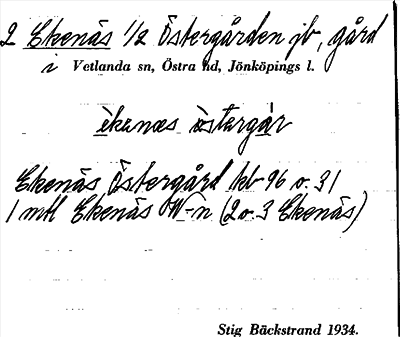 2 Ekenäs 1/2 Östergården jb, gård
i Vetlanda sn, Östra hd, Jönköpings l.
èkenæs òstergår
Ekenäs Östergård kb 96 o. 31
1 mtl Ekenäs (2 o. 3 Ekenäs)
Stig Bäckstrand 1934.